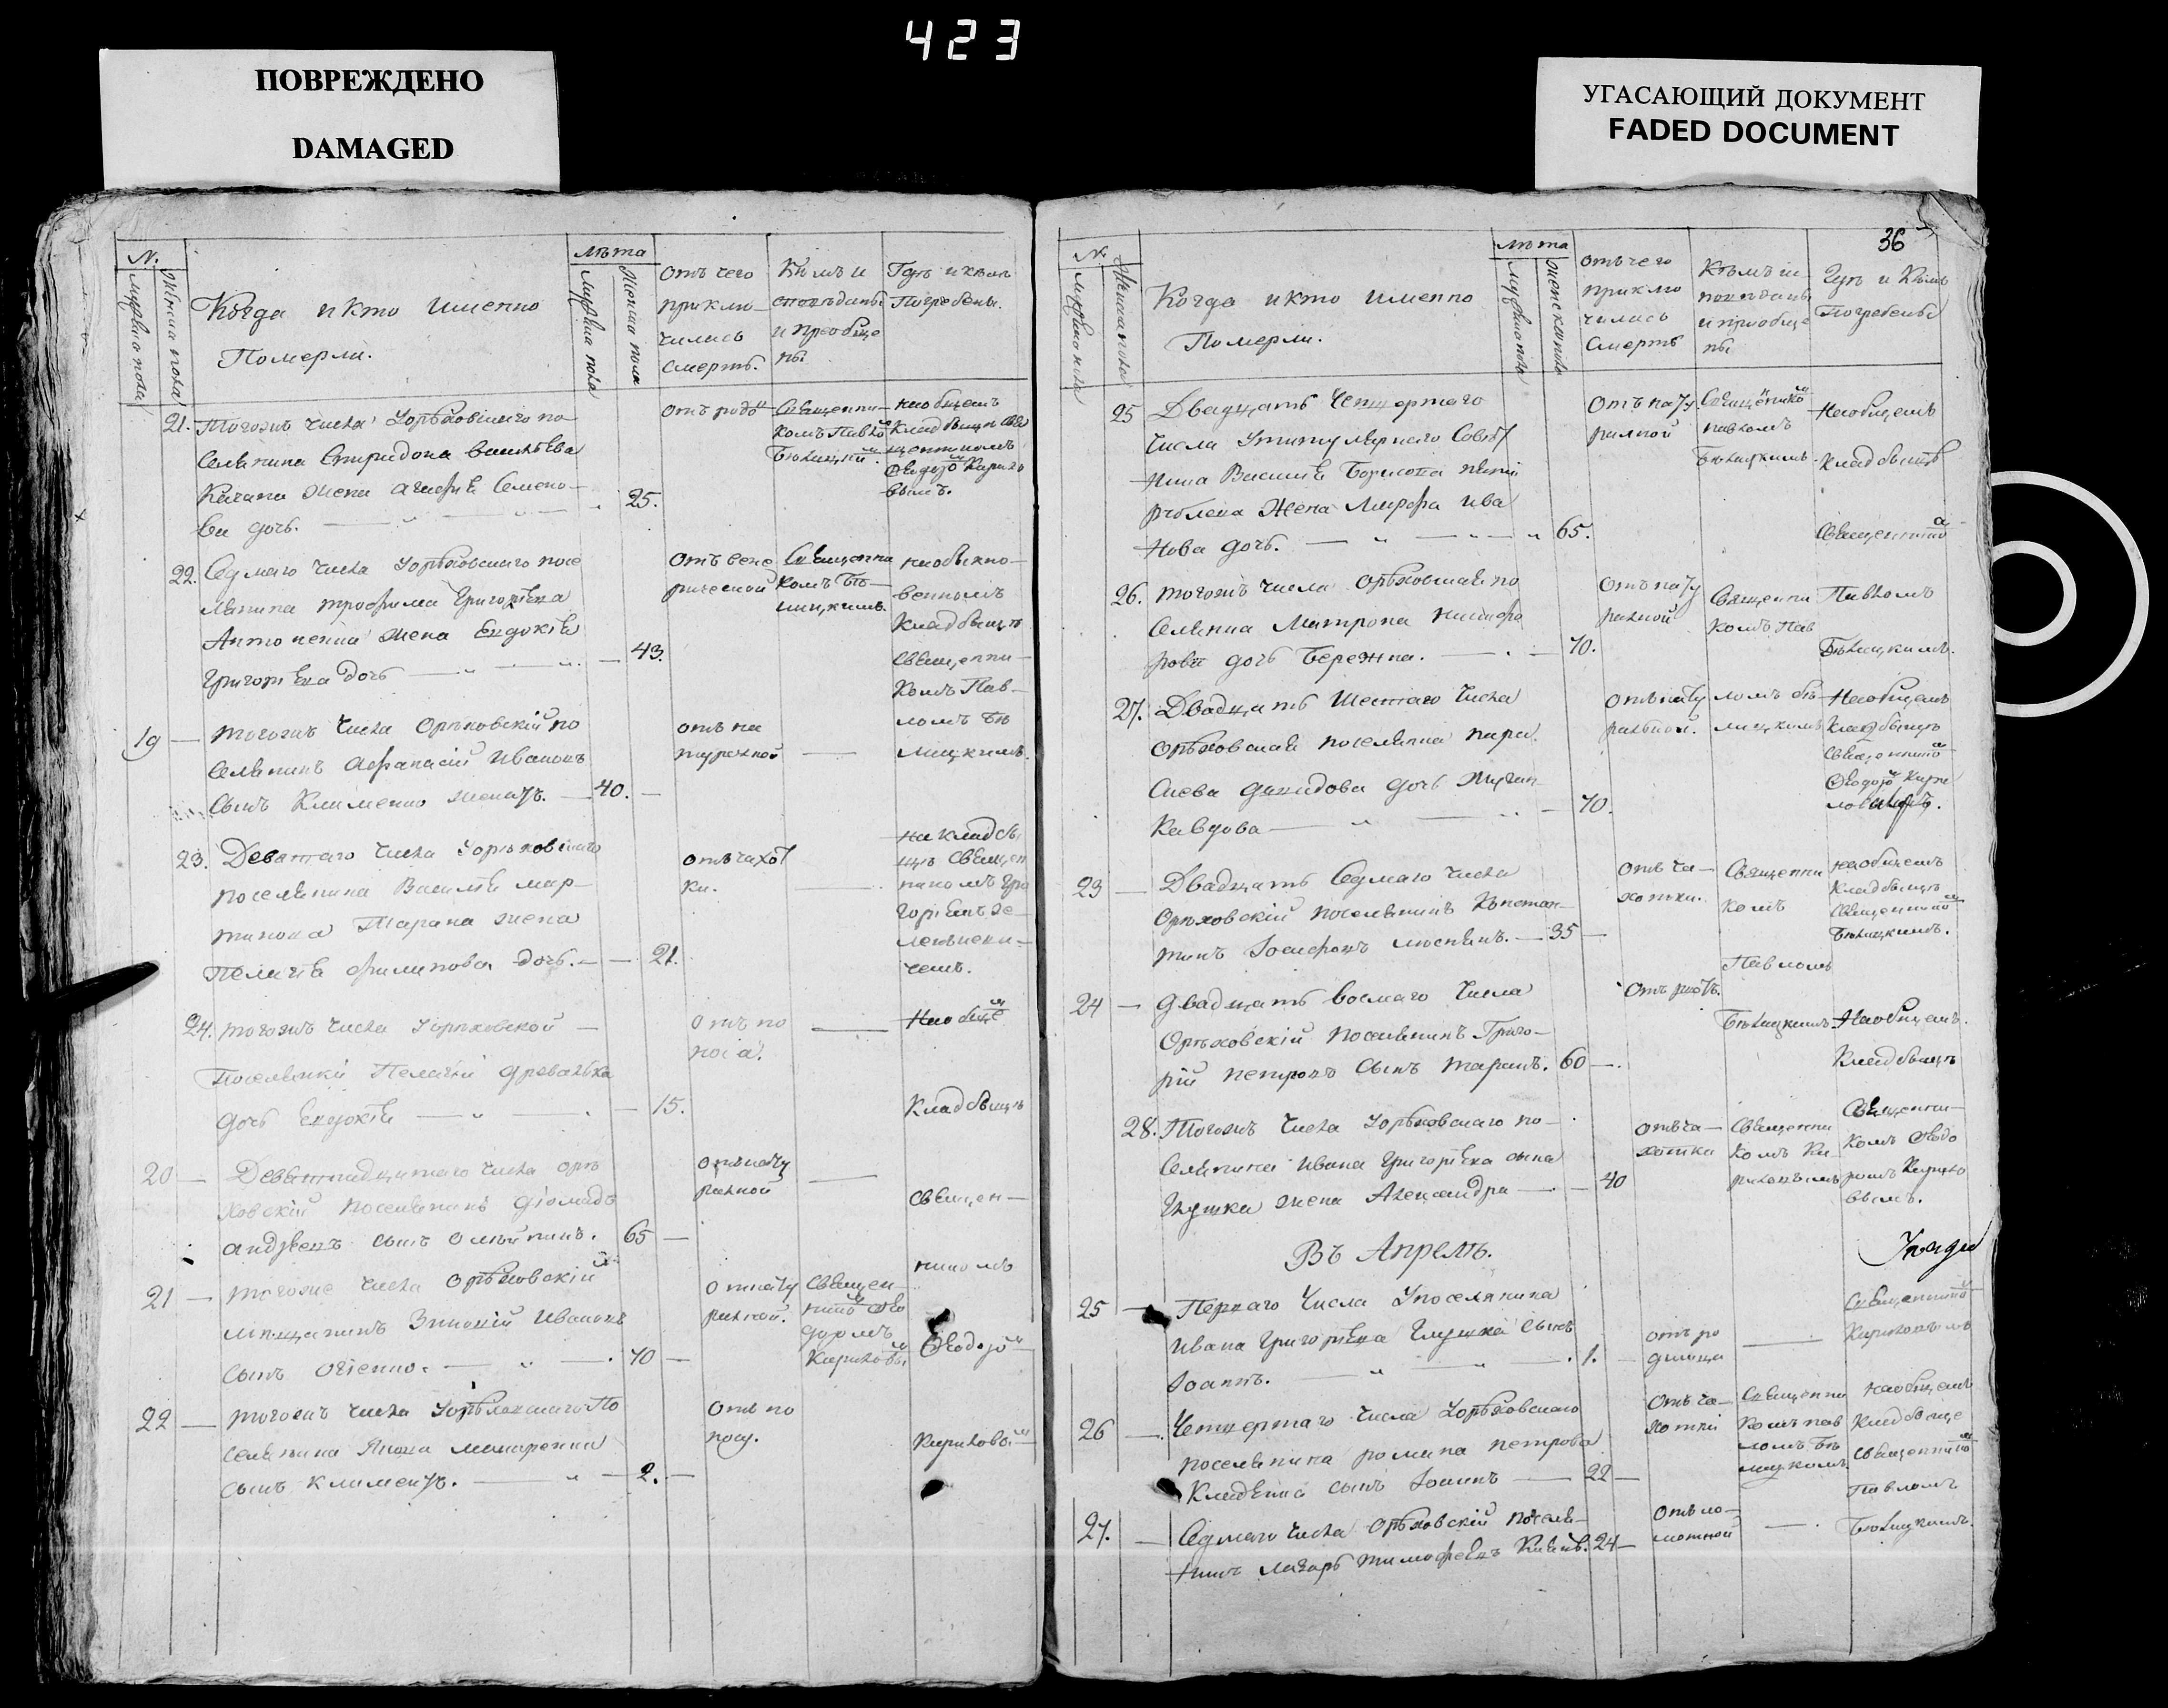 423
ПОВРЕЖДЕНО
DAMAGED
УГАСАЮЩИЙ ДОКУМЕНТ
FADED DOCUMENT
N. Лѣта
Мужска пола
Женска пола
Когда и кто именно
Померли.
Мужска пола
Женска пола
Отъ чего
приклю-
чилась
смерть.
Кѣмъ и
сповѣданы
и преобще
ны.
Гдѣ и кѣмъ
Погребены.
21. Тогожъ числа Уорѣховскаго по
селянина Спиридона Василѣва
жена Агафия Семено-
ва дочь. 25.
отъ родо
Священни-
комъ Павло
Бѣлицки.
на общемъ
Кладбищи свя
щенникомъ
Ѳедоро Кирило
вымъ.
22. Седмаго числа Уорѣховскаго посе
лянина Трофима Григорѣева
Антоненка жена Евдокія
Григорѣева дочь 43.
Отъ вене
рической
Священни
комъ Бѣ-
лицкимъ.
на обыкно-
венномъ
Кладбищѣ
Священни-
комъ Пав-
ломъ Бѣ
лицкимъ.
19 Тогожъ числа Орѣховскій по
селянинъ Афанасій Ивановъ
сынъ Клименко женатъ. 40.
отъ на
туральной
23. Девятаго числа Уорѣховскаго
поселянина Василія Мар-
тинова Тарана жена
Пелагія Филипова дочь. 21.
отъ чахот
ки.
на кладби
щѣ Священ
никомъ Гри
горіемъ Зе-
ленѣцки-
чемъ.
24. Тогожъ числа Уорѣховской
Поселянки Пелагіи
дочь Евдокія 15.
отъ по
носа.
на обще
Кладбищѣ
20 Девятнадцатаго числа орѣ
ховскій поселянинъ Діомидъ
Андреевъ сынъ Олѣйникъ. 65
отъ нату
ральной
Священ-
никомъ
21 Тогоже числа Орѣховскій
мѣщанинъ Зиновій Ивановъ
сынъ Огіенко. 70
отъ нату
ральной.
Священ
нико Ѳео
доромъ
Кирилов.
Ѳеодоро
22 Тогожъ числа Уорѣховскаго По
селянина Якова Макаренка
сынъ Климентъ. 2.
отъ по
носу.
Кирилово
36
N. Лѣта
Мужска пола
Женска пола
Когда и кто именно
Померли.
Мужска пола
Женска пола
отъ чего
приклю
чилась
смерть
Кѣмъ ис
повѣданы
и приобще
ны
Гдѣ и Кѣмъ
Погребены
25 Двадцать Четвертаго
числа Утитулярнаго Совѣт
ника Василія Борисова
жена Марфа Ива
нова дочь. 65.
отъ нату
ралной
Священико
павломъ
Бѣлицкимъ.
на общемъ
Кладбищѣ
Священнико
26. Тогожъ числа Орѣховская по
селянка Матрона Никифо
рова дочь Бережна. 70.
отъ нату
ралной
Священни
комъ Пав
Павломъ
Бѣлицкимъ.
27. Двадцать Шестаго числа
Орѣховская поселянка Пара
скева Давидова дочь
70.
отъ нату
ральной.
ломъ бѣ
лицкимъ
на общемъ
кладбищѣ
священнико
Ѳедоро Кири
ловымъ.
23 Двадцать Седмаго числа
Орѣховскій поселянинъ Констан
тинъ Іосифовъ 35
отъ ча-
хотки.
Священни
комъ
на общемъ
кладбищѣ
священнико
Бѣлицкимъ.
24 Двадцать Восмаго Числа
Орѣховскій поселянинъ Григо-
рій Петровъ сынъ Таранъ. 60
Павломъ
Бѣлицкимъ
на общемъ
Кладбищѣ
28. Тогожъ числа Уорѣховскаго по-
селянина Ивана Григорѣева сына
Глушка жена Александра 40
отъ ча-
хотки
Священни
комъ Ки-
риловымъ
Священни-
комъ Ѳеодо
ромъ Кирило
вымъ.
Въ Апрелѣ.
25 Перваго числа Упоселянина
Ивана Григорѣева Глушка сынъ
Іоаннъ. 1.
отъ ро
димца
Священнико
Кириловымъ
26 Четвертаго числа Уорѣховскаго
поселянина Романа Петрова
сынъ Іоаннъ 22
отъ ча-
хотки
Священни
комъ пав
ломъ Бѣ
лицкимъ.
на общемъ
Кладбище
священнико
Павломъ
27. Седмаго числа Орѣховскій поселя-
нинъ Лазарь Тимофѣевъ 24
отъ ло-
мотной
Бѣлицкимъ.